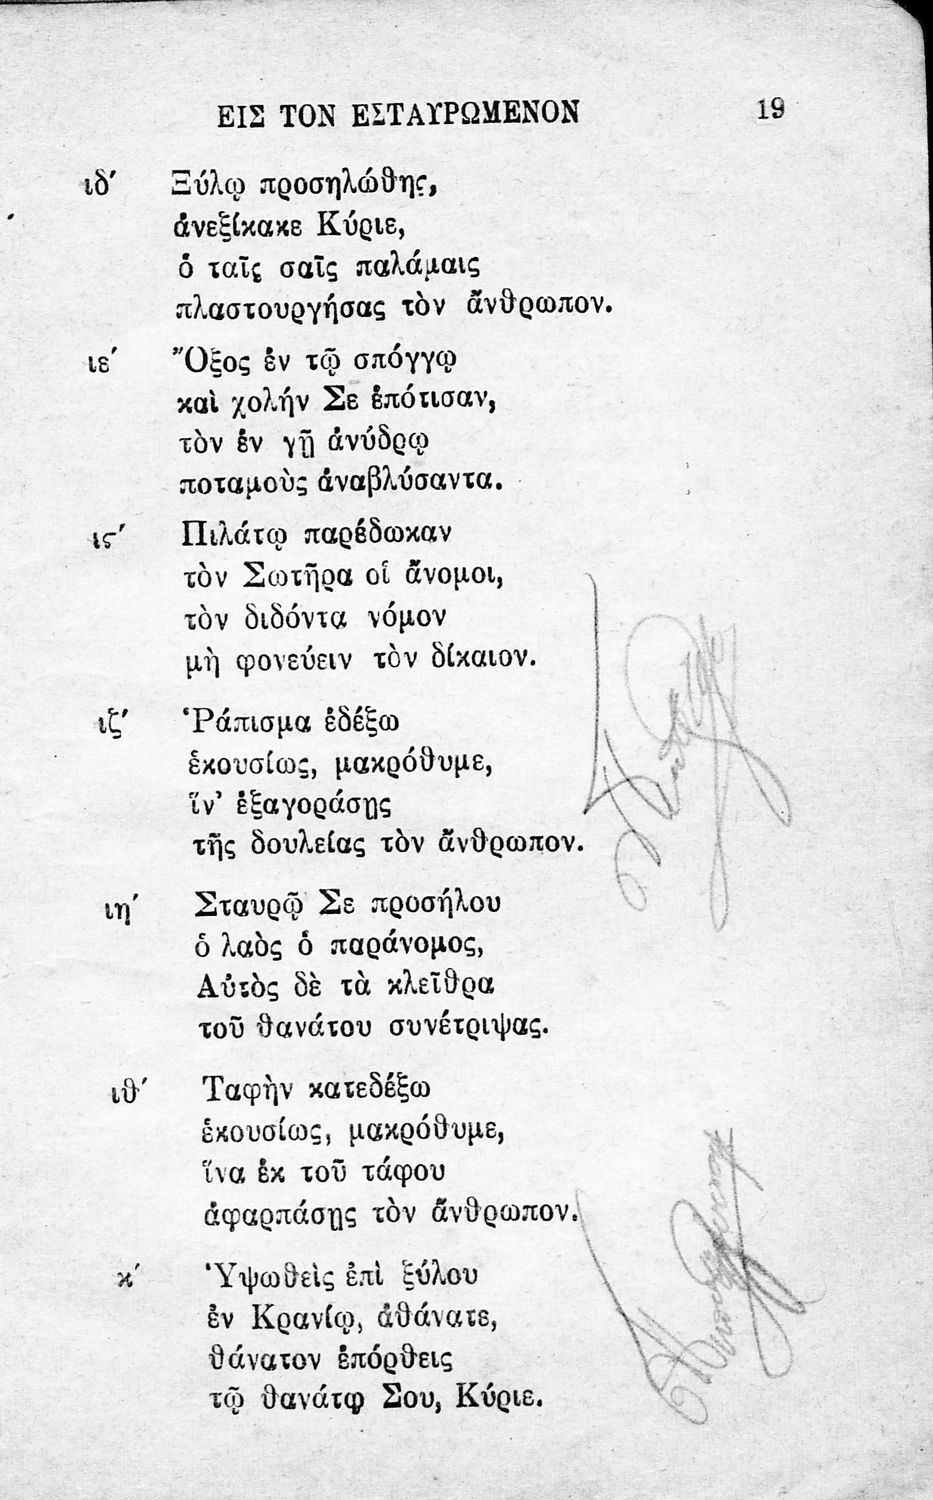 ΕΙΣ ΤΟΝ ΕΣΤΑΥΡΩΜΕΝΟΝ 19
ιδ΄ Ξύλῳ προσηλώθης,
ἀνεξίκακε Κύριε,
ὁ ταῖς σαῖς παλάμαις
πλαστουργήσας τὸν ἄνθρωπον.
ιε΄ Ὄξος ἐν τῷ σπόγγῳ
καὶ χολήν Σε ἐπότισαν,
τὸν ἐν γῇ ἀνύδρῳ
ποταμοὺς ἀναβλύσαντα.
ις΄ Πιλάτῳ παρέδωκαν
τὸν Σωτῆρα οἱ ἄνομοι,
τὸν διδόντα νόμον
μὴ φονεύειν τὸν δίκαιον.
ιζ΄ Ῥάπισμα ἐδέξω
ἑκουσίως, μακρόθυμε,
ἵν’ ἐξαγοράσῃς
τῆς δουλείας τὸν ἄνθρωπον.
ιη΄ Σταυρῷ Σε προσήλου
ὁ λαὸς ὁ παράνομος,
Αὐτὸς δὲ τὰ κλεῖθρα
τοῦ θανάτου συνέτριψας.
ιθ΄ Ταφὴν κατεδέξω
ἑκουσίως, μακρόθυμε,
ἵνα ἐκ τοῦ τάφου
ἀφαρπάσῃς τὸν ἄνθρωπον.
κ΄ Ὑψωθεὶς ἐπὶ ξύλου
ἐν Κρανίῳ, ἀθάνατε,
θάνατον ἐπόρθεις
τῷ θανάτῳ Σου, Κύριε.